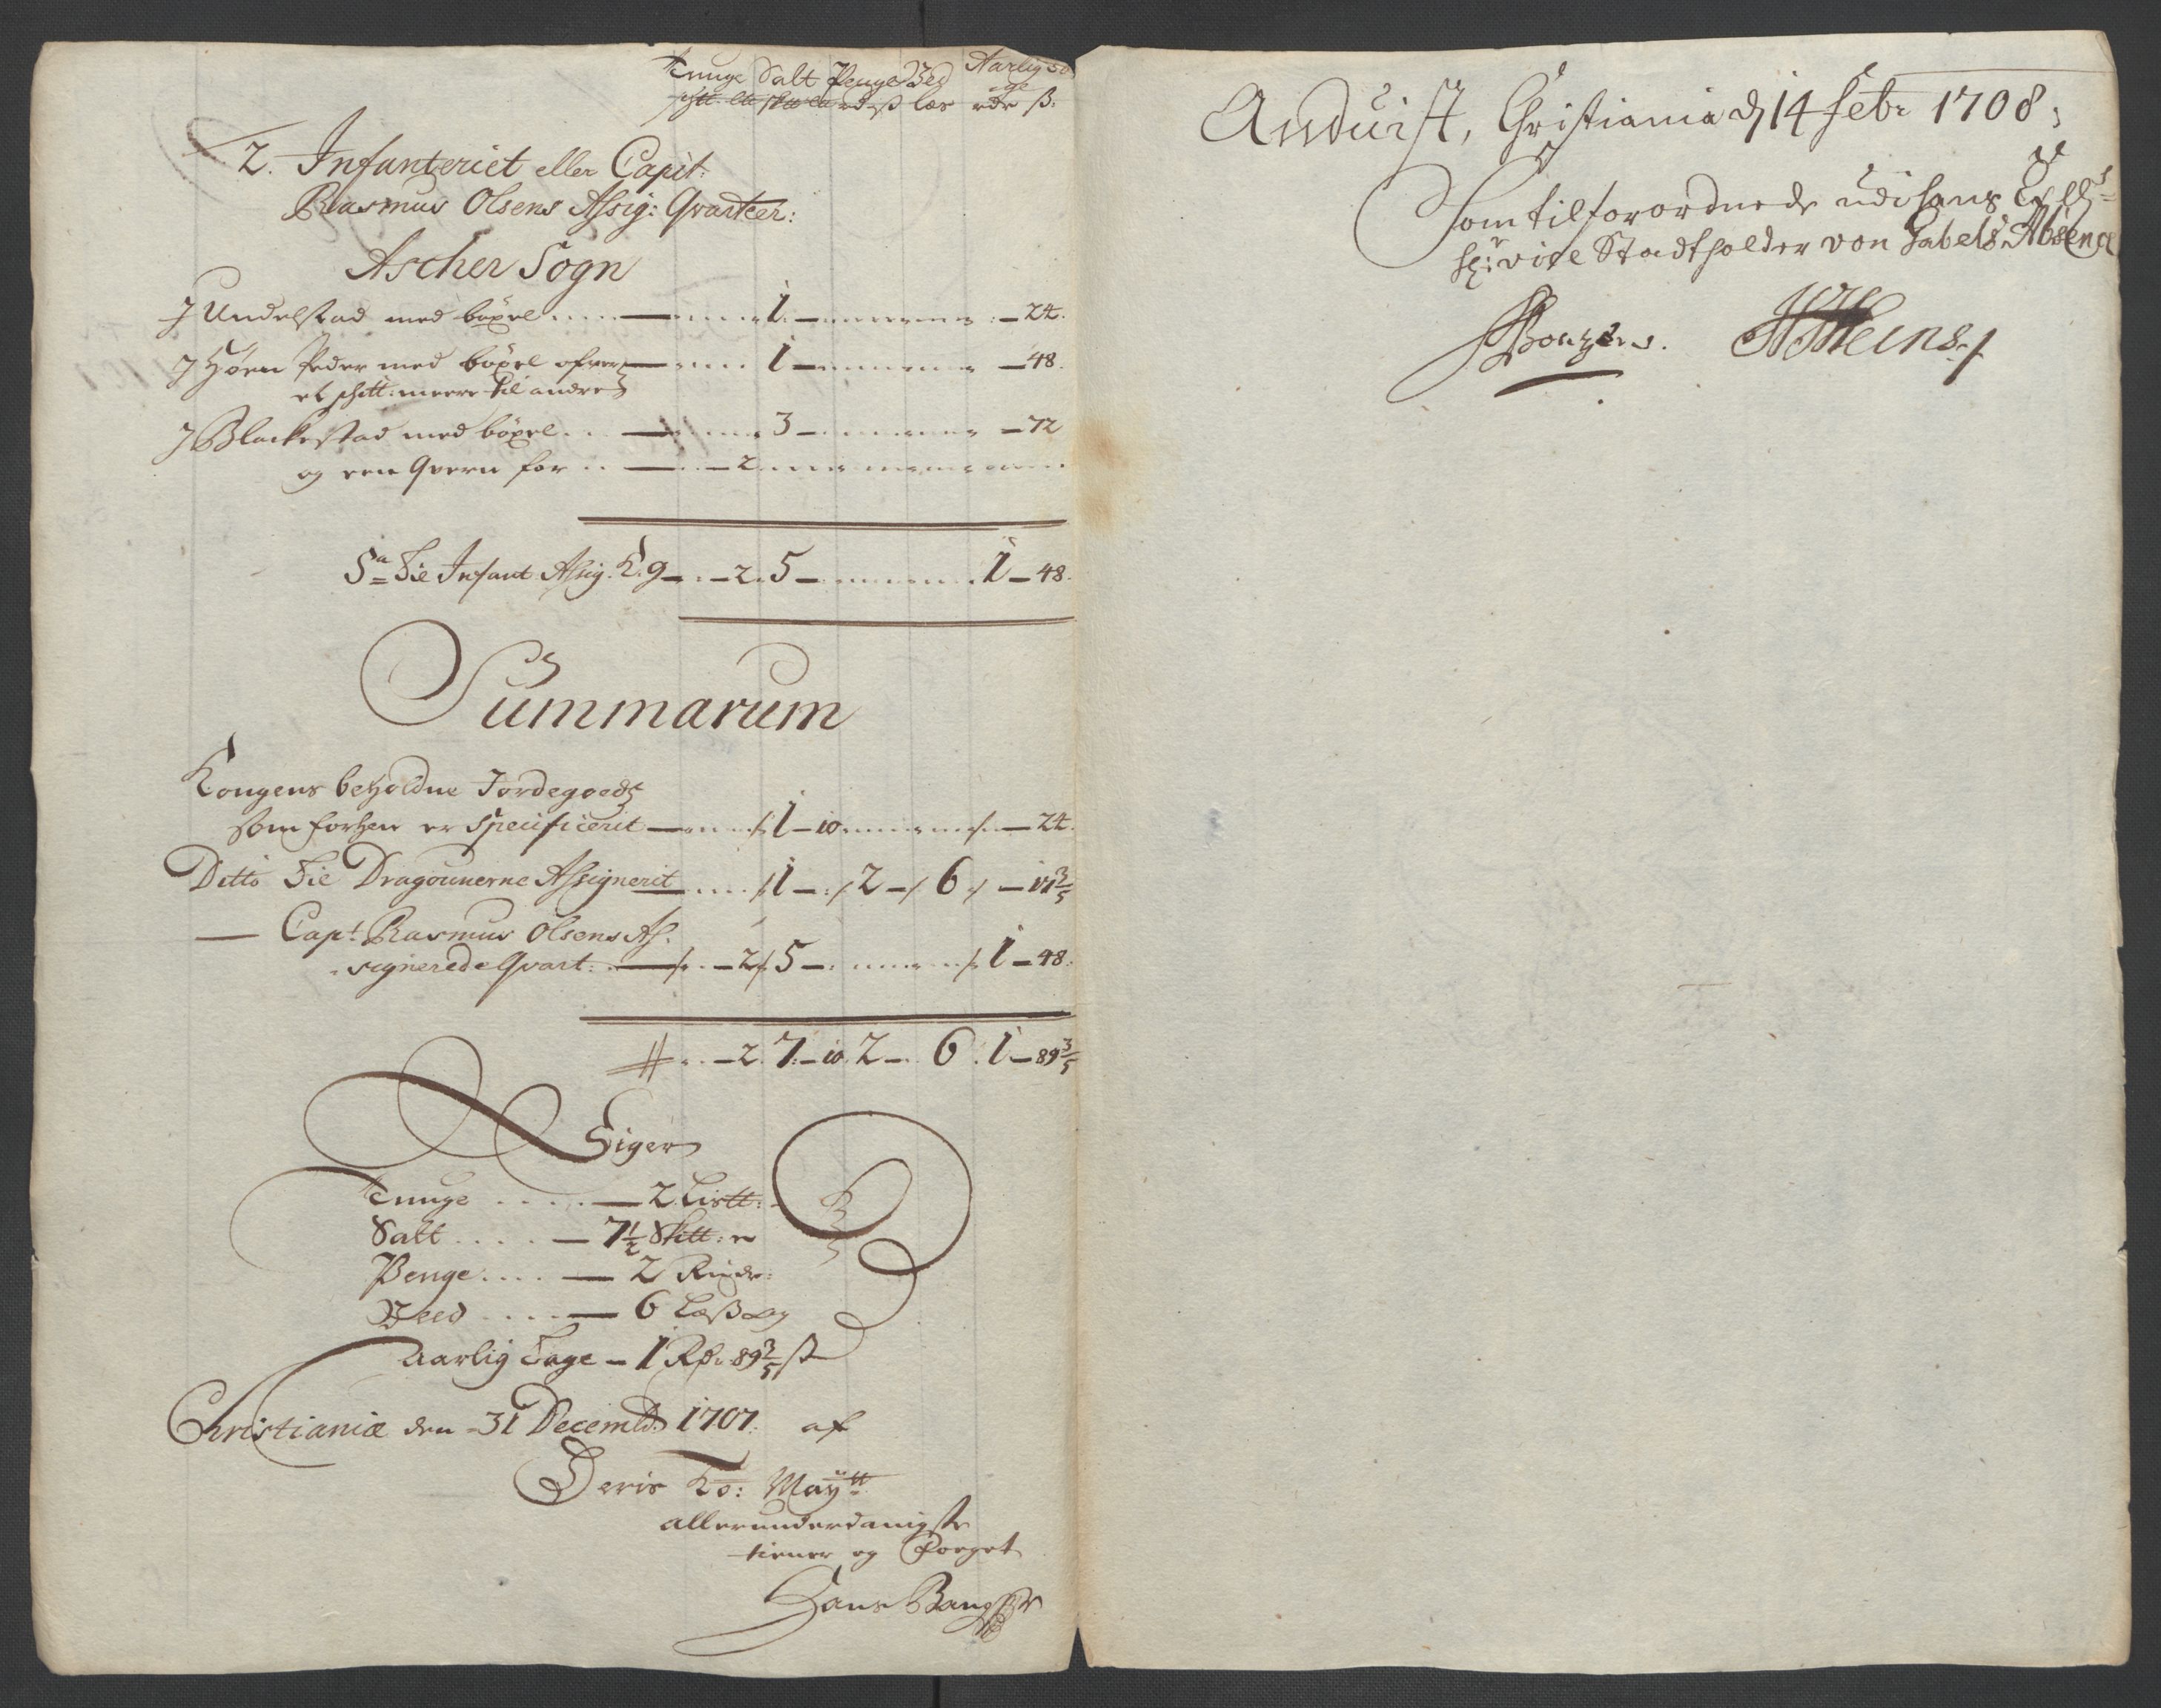 Tunge Salt Penge Ved Aarlig To
ge
schtt. ltt skttr rd ß læs rdr ß:
2. Infanteriet eller Capit:
Rasmus Olsens Assig: Qvarteer:
Ascher Sogn
J Undelstad med böxel 1 24.
J Høen Peder med böxel ofver 1 48.
et schtt: meere til andre
J Blackestad med böxel 3 72
og een Qvern for 2
Sa Til Infant Assig. K. 9 2. 5 1 48.
Summarum
Kongens beholdne Jordegoeds
som forhen er Specificerit 1 10 24.
Ditto Til Dragounerne Assignerit 1 2 6 17 3/5
Capt Rasmus Olsens As:
signerede Qvart: 2 5 1 48:
2. 7. 10. 2 6. 1 89 3/5
Siger
Tunge 2 Listt:
Salt 7 1/2 Skttr: r
Penge 2 Rixdr:
Veed 6 Læss og
Aarlig Tage 1 Rdr 89 3/5 ß
Christiania den 31 Decembr: 1707. af
Deris Ko: Maytt
allerunderdanigste
tiener og Foeget
Hans Bang
Anduist, Christiania d 14 Febr 1708;
Som tilforordnede udi hans Excell:
Hr: vice Stadtholder von Gabels Absence